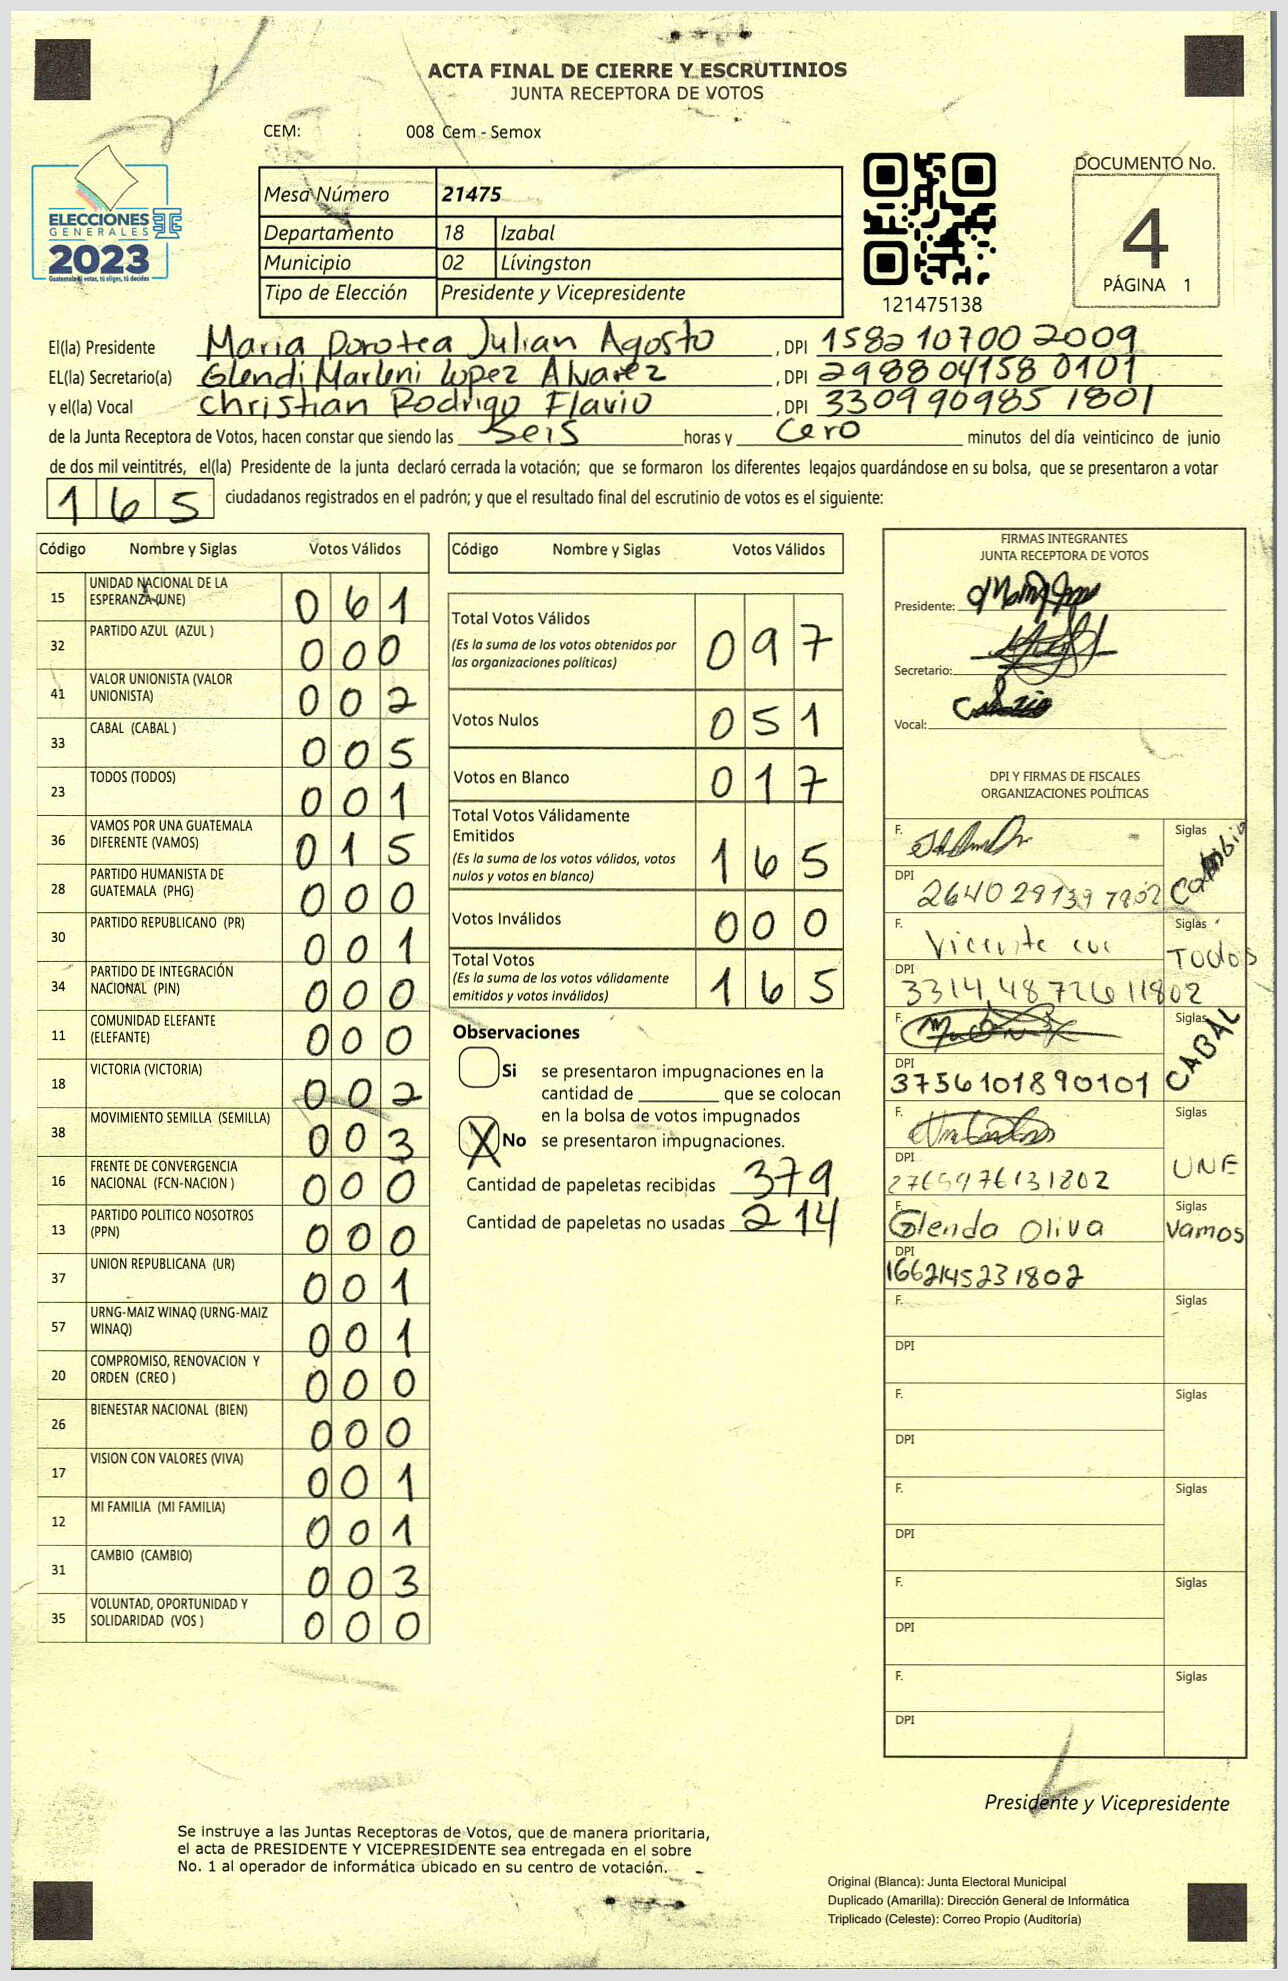 ACTA FINAL DE CIERRE Y ESCRUTINIOS
JUNTA RECEPTORA DE VOTOS
CEM: 008 Cem - Semox
ELECCIONES
GENERALES
2023
Guatemala tú votas, tú eliges, tú decides
Mesa Número 21475
Departamento 18 Izabal
Municipio 02 Lívingston
Tipo de Elección Presidente y Vicepresidente
121475138
DOCUMENTO No.
4
PÁGINA 1
El(la) Presidente Maria Dorotea Julian Agosto, DPI 1582 10700 2009
EL(la) Secretario(a) Glendi Marleni Lopez Alvarez, DPI 2988 04158 0101
y el(la) Vocal Christian Rodrigo Flavio, DPI 3309 90985 1801
de la Junta Receptora de Votos, hacen constar que siendo las seis horas y cero minutos del día veinticinco de junio
de dos mil veintitrés, el(la) Presidente de la junta declaró cerrada la votación; que se formaron los diferentes legajos quardándose en su bolsa, que se presentaron a votar
165 ciudadanos registrados en el padrón; y que el resultado final del escrutinio de votos es el siguiente:
Código Nombre y Siglas Votos Válidos
15 UNIDAD NACIONAL DE LA ESPERANZA (UNE) 061
32 PARTIDO AZUL (AZUL ) 000
41 VALOR UNIONISTA (VALOR UNIONISTA) 002
33 CABAL (CABAL ) 005
23 TODOS (TODOS) 001
36 VAMOS POR UNA GUATEMALA DIFERENTE (VAMOS) 015
28 PARTIDO HUMANISTA DE GUATEMALA (PHG) 000
30 PARTIDO REPUBLICANO (PR) 001
34 PARTIDO DE INTEGRACIÓN NACIONAL (PIN) 000
11 COMUNIDAD ELEFANTE (ELEFANTE) 000
18 VICTORIA (VICTORIA) 002
38 MOVIMIENTO SEMILLA (SEMILLA) 003
16 FRENTE DE CONVERGENCIA NACIONAL (FCN-NACION ) 000
13 PARTIDO POLITICO NOSOTROS (PPN) 000
37 UNION REPUBLICANA (UR) 001
57 URNG-MAIZ WINAQ (URNG-MAIZ WINAQ) 001
20 COMPROMISO, RENOVACION Y ORDEN (CREO ) 000
26 BIENESTAR NACIONAL (BIEN) 000
17 VISION CON VALORES (VIVA) 001
12 MI FAMILIA (MI FAMILIA) 001
31 CAMBIO (CAMBIO) 003
35 VOLUNTAD, OPORTUNIDAD Y SOLIDARIDAD (VOS ) 000
Código Nombre y Siglas Votos Válidos
Total Votos Válidos 097
(Es la suma de los votos obtenidos por
las organizaciones políticas)
Votos Nulos 051
Votos en Blanco 017
Total Votos Válidamente
Emitidos 165
(Es la suma de los votos válidos, votos
nulos y votos en blanco)
Votos Inválidos 000
Total Votos 165
(Es la suma de los votos válidamente
emitidos y votos inválidos)
Observaciones
Si se presentaron impugnaciones en la
cantidad de ________ que se colocan
en la bolsa de votos impugnados
X No se presentaron impugnaciones.
Cantidad de papeletas recibidas 379
Cantidad de papeletas no usadas 214
FIRMAS INTEGRANTES
JUNTA RECEPTORA DE VOTOS
Presidente:
Secretario:
Vocal:
DPI Y FIRMAS DE FISCALES
ORGANIZACIONES POLÍTICAS
F. Siglas Cambio
DPI
F. Vicente Siglas TODOS
DPI
F. Siglas CABAL
DPI 3756101890101
F. Siglas UNE
DPI
F. Glenda Oliva Siglas Vamos
DPI 1662145231802
F. Siglas
DPI
F. Siglas
DPI
F. Siglas
DPI
F. Siglas
DPI
F. Siglas
DPI
Presidente y Vicepresidente
Se instruye a las Juntas Receptoras de Votos, que de manera prioritaria,
el acta de PRESIDENTE Y VICEPRESIDENTE sea entregada en el sobre
No. 1 al operador de informática ubicado en su centro de votación.
Original (Blanca): Junta Electoral Municipal
Duplicado (Amarilla): Dirección General de Informática
Triplicado (Celeste): Correo Propio (Auditoría)